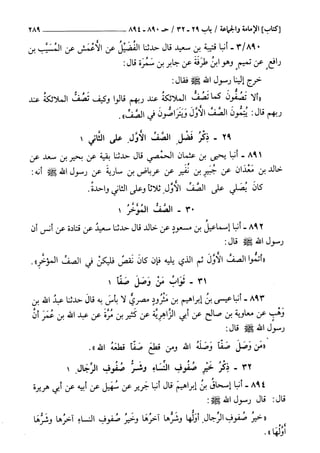 [كتاب] الإمامة والجماعة / باب ٢٩ - ٣٢ / حـ ٨٩٠ - ٨٩٤ ــــــ ٢٨٩
٣/٨٩٠ - أنبا قتيبة بن سعيد قال حدثنا الفُضَيْلُ عن الأعمَش عن المُسَيَّب بن
رافع عن تميم وهو ابنُ طرَفَةَ عن جابر بن سَمُرَة قال:
خرج إلينا رسول الله ﷺ فقال:
«ألا تَصُفُّونَ كما تَصُفُّ الملائكةُ عند ربهم قالوا وكيف تَصُفُّ الملائكةُ عند
ربهم قال: يُتِمُّونَ الصفَّ الأولَ ويَتَراصُّونَ في الصفِّ».
٢٩ - ذِكْرُ فَضْلِ الصَّفِّ الأَوَّلِ على الثَّاني ١
٨٩١ - أنبا يحيى بن عثمان الحمْصي قال حدثنا بقية عن بحير بن سعد عن
خالد بن مَعْدَانَ عن جُبَيرِ بن نُفَير عن عِرباض بن سارية عن رسول الله ﷺ أنه:
كانَ يُصَلي على الصَّفِّ الأوَّلِ ثلاثاً وعلى الثاني واحدةً.
٣٠ - الصَّفُّ المُؤَخَّرُ ١
٨٩٢ - أنبا إسماعيلُ بن مسعودٍ عن خالد قال حدثنا سعيدٌ عن قتادة عن أنسٍ أن
رسول الله ﷺ قال:
«أتمُّوا الصفَّ الأوَّلَ ثم الذي يليه فإن كانَ نَقصٌ فليكنْ في الصف المؤخَّرِ».
٣١ - ثَوَابُ مَنْ وَصَلَ صَفًّا ١
٨٩٣ - أنبا عيسى بنُ إبراهيم بن مَثْرُودٍ مصريٌّ لا بأسَ به قالَ حدثنا عبدُ الله بن
وَهْبٍ عن معاوية بن صالح عن أبي الزَّاهِريَّة عن كَثير بن مُرَّةَ عن عبد الله بن عُمَرَ أنَّ
رسولَ الله ﷺ قال:
«مَن وَصَلَ صَفًّا وَصَلَهُ الله ومن قطعَ صَفًّا قطعَهُ الله».
٣٢ - ذِكْرُ خَيْرِ صُفوفِ النِّساءِ وشرِّ صُفوفِ الرِّجالِ ١
٨٩٤ - أنبا إسحاقُ بنُ إبراهيمَ قال أنبا جَرير عن سُهَيل عن أبيه عن أبي هريرة
قال: قال رسول الله ﷺ:
«خيرُ صُفوفِ الرِّجالِ أوَّلُها وشرُّها آخرُها وخيرُ صُفوفِ النساءِ آخرُها وشرُّها
أوَّلُها».